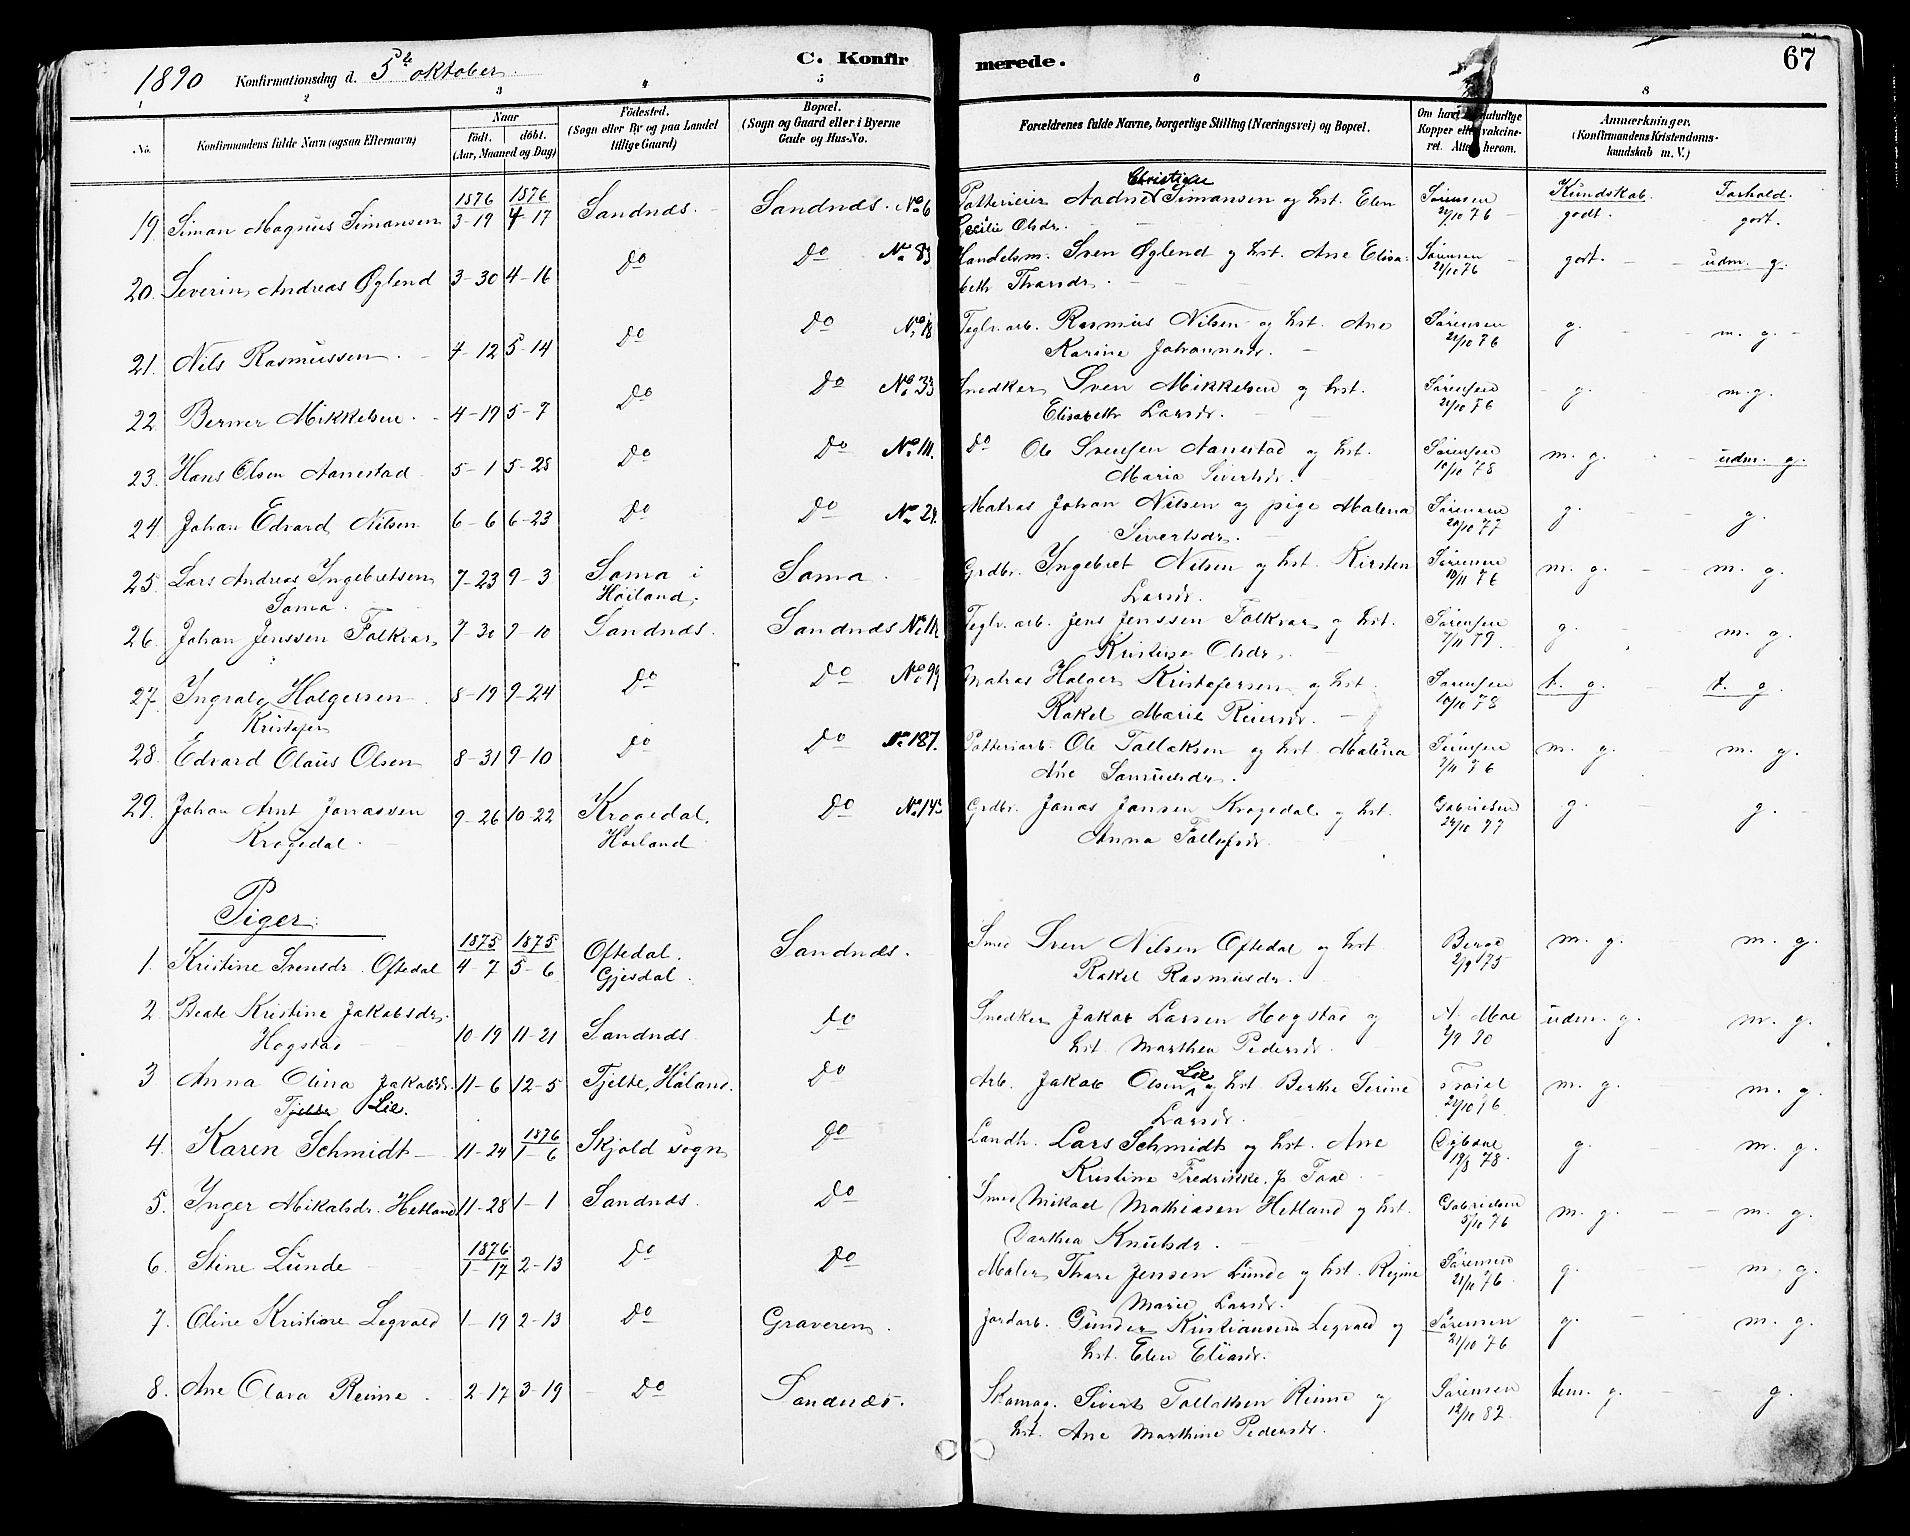 1890 Konfirmationsdag d. 5te oktober. C. Konfirmerede. 67
1 2 3 4 5 6 8
No. Konfirmandens fulde Navn (ogsaa Efternavn) Naar født. døbt. (Aar, Maaned og Dag) Fødested. (Sogn eller By og paa Landet tillige Gaard) Bopæl. (Sogn og Gaard eller i Byerne Gade og Hus-No. Forældrenes fulde Navne, borgerlige Stilling (Næringsvei) og Bopæl. Om havt naturlige Kopper eller vakcineret. Attest herom. Anmærkninger. (Konfirmandens Kristendomskundskab m. V.)
1876 1876 Christian Kundskab. Forhold.
19. Simon Magnus Simonsen 3-19 4-17 Sandnæs. Sandnæs. No 6 Potterieier Aadne Simonsen og hst. Elen Sørensen 21/10 76 godt. godt.
Cecilie Olsdr.
20. Severin Andreas Øglend 3-30 4-16 Do Do No 83 Handelsm. Sven Øglend og hst. Ane Elisa- Sørensen 21/10 76 godt. udm. g.
beth Thorsdr.
21. Nils Rasmussen. 4-12 5-14 Do Do No 18 Teglv.arb. Rasmus Nilsen og hst. Ane Sørensen 21/10 76 g. m. g.
Karine Johannesdr.
22. Berner Mikkelsen. 4-19 5-7 Do Do No 33 Snedker Sven Mikkelsen og hst. Sørensen 21/10 76 g. m. g.
Elisabeth Larsdr.
23. Hans Olsen Aanestad 5-1 5-28 Do Do No 111. Do Ole Svensen Aanestad og hst. Sørensen 10/10 78 m. g. udm. g.
Maria Sivertsdr.
24. Johan Edvard Nilsen 6-6 6-23 Do Do No 24. Matros Johan Nilsen og pige Malena Sørensen 20/10 77 g. g.
Sivertsdr.
25. Lars Andreas Ingebretsen 7-23 9-3 Soma i Soma. Grdbr. Ingebret Nilsen og hst. Kirsten Sørensen 10/11 76 m. g. m. g.
Soma. Høiland. Larsdr.
26. Johan Jenssen Folkvar 7-30 9-10 Sandnæs. Sandnæs No 111 Teglv.arb. Jens Jenssen Folkvar og hst. Sørensen 7/11 79. g. m. g.
Kristense Olsdr.
27. Ingvald Holgersen 8-19 9-24 Do Do No 99 Matros Holger Kristofersen og hst. Sørensen 10/10 78 t. g. t. g.
Kristofer Rakel Marie Reiersdr.
28. Edvard Olaus Olsen 8-31 9-10 Do Do No 187. Potteriarb. Ole Tollaksen og hst. Malena Sørensen 7/11 76 m. g. m. g.
Ane Samuelsdr.
29. Johan Arnt Jonassen 9-26 10-22 Krogedal, Do No 143 Grdbr. Jonas Jonsen Krogedal og hst. Gabrielsen 24/10 77 g. g.
Krogedal. Høiland Anna Tollefsdr.
Piger:
1875 1875
1. Kristine Svensdr. Oftedal 4-7 5-6 Oftedal. Sandnæs. Smed Sven Nilsen Oftedal og hst. Berge 2/9 75 m. g. m. g.
Gjesdal. Rakel Rasmusdr.
2. Beate Kristine Jakobsdr. 10-19 11-21 Sandnæs Do Snedker Jakob Larsen Hogstad og A. Moe 2/9 90 udm. g. m. g.
Hogstad hst. Marthea Pedersdr.
3. Anna Olina Jakobsdr. 11-6 12-5 Tjelte, Håland. Do Arb. Jakob Olsen Lie og hst. Berte Serine 21/10 76 m. g. m. g.
Tjelte Lie. Larsdr.
4. Karen Schmidt 11-24 1876 1-6 Skjold sogn Do Landh. Lars Schmidt og hst. Ane 19/8 78. g. m. g.
Kristine Fredrikke f.
5. Inger Mikalsdr. Hetland 11-28 1-1 Sandnæs. Do Smed Mikael Mathiasen Hetland og hst. Gabrielsen 5/10 76 m. g. m. g.
Dorthea Knutsdr.
6. Stine Lunde 1876 1-17 2-13 Do Do Maler Thore Jensen Lunde og hst. Regine Sørensen 21/10 76. g. m. g.
Marie Larsdr.
7. Oline Kristiane Legvold 1-19 2-13 Do Graveren. Jordarb. Gunder Kristiansen Legvold og Sørensen 21/10 76 g. m. g.
hst. Elen Eliasdr.
8. Ane Olava Reime. 2-17 3-19 Do Sandnæs. Skomag. Sivert Tollaksen Reime og Sørensen 12/10 82. tem. g. g.
hst. Ane Marthine Pedersdr.